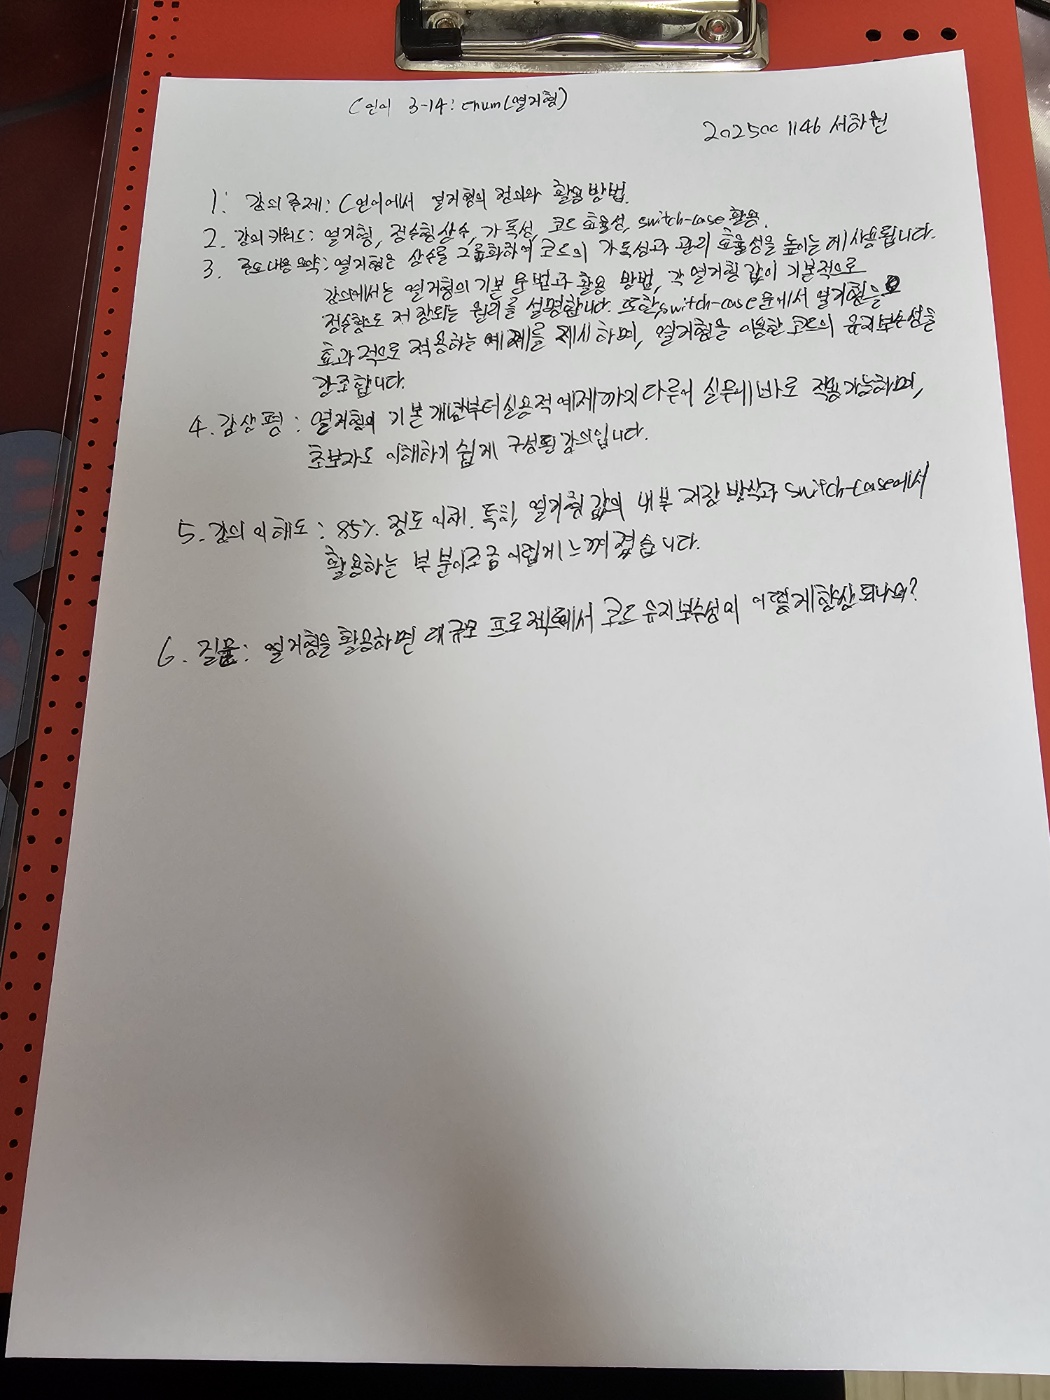 C언어 3-14: enum(열거형)
2025001146 서하원
1. 강의 주제: C언어에서 열거형의 정의와 활용방법.
2. 강의 키워드: 열거형, 정수형상수, 가독성, 코드 효율성, switch-case 활용.
3. 주요내용 요약: 열거형은 상수를 그룹화하여 코드의 가독성과 관리 효율성을 높이는 데 사용됩니다.
강의에서는 열거형의 기본 문법과 활용 방법, 각 열거형 값이 기본적으로
정수형으로 저장되는 원리를 설명합니다. 또한, switch-case문에서 열거형을
효과적으로 적용하는 예제를 제시하며, 열거형을 이용한 코드의 유지보수성을
강조합니다.
4. 감상평: 열거형의 기본개념부터 실용적 예제까지 다루어 실무에 바로 적용가능하며,
초보자도 이해하기 쉽게 구성된 강의입니다.
5. 강의 이해도: 85% 정도 이해. 특히, 열거형 값의 내부 저장 방식과 switch-case에서
활용하는 부분이 조금 어렵게 느껴졌습니다.
6. 질문: 열거형을 활용하면 대규모 프로젝트에서 코드 유지보수성이 어떻게 향상되나요?